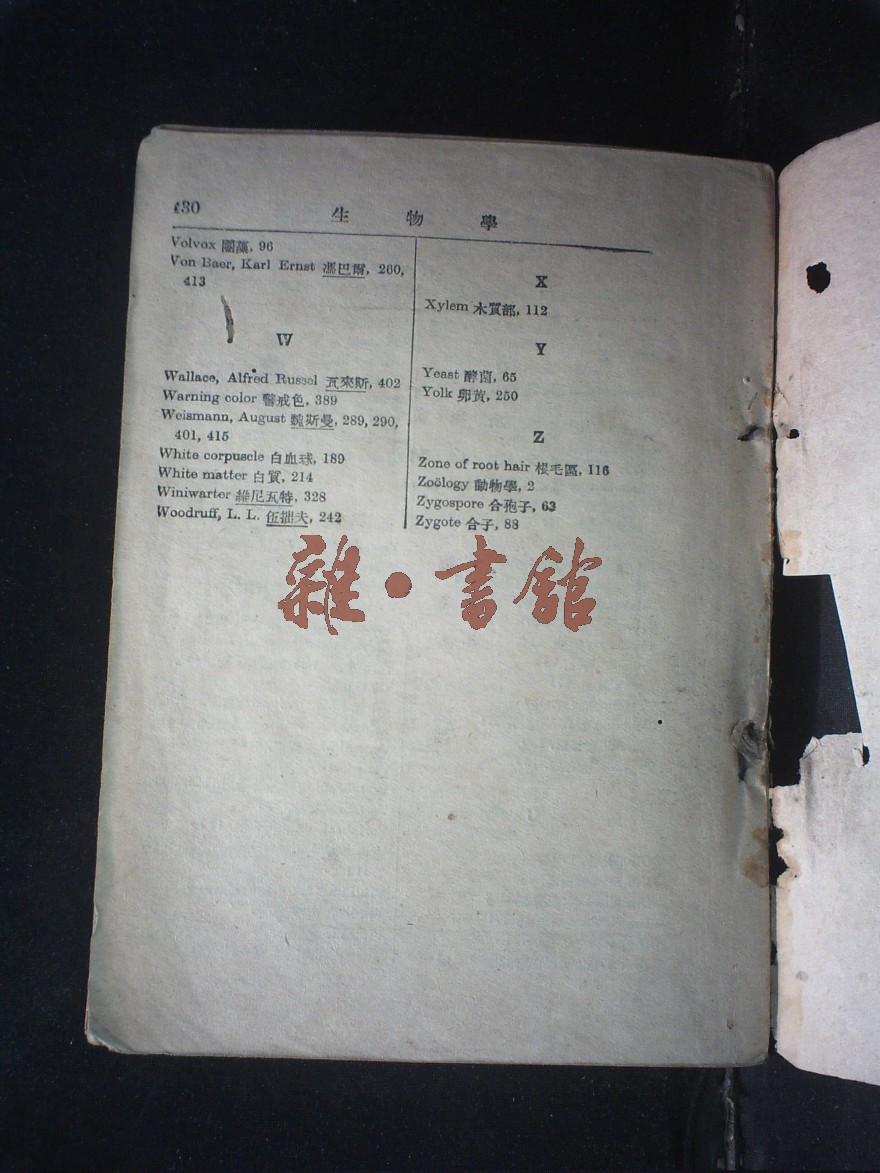 430
生物學
Volvox 團藻, 96
Von Baer, Karl Ernst 馮巴爾, 260,
413
W
Wallace, Alfred Russel 瓦來斯, 402
Warning color 警戒色, 389
Weismann, August 魏斯曼, 289, 290,
401, 415
White corpuscle 白血球, 189
White matter 白質, 214
Winiwarter 維尼瓦特, 328
Woodruff, L. L. 伍拙夫, 242
X
Xylem 木質部, 112
Y
Yeast 酵菌, 65
Yolk 卵黃, 250
Z
Zone of root hair 根毛區, 116
Zoölogy 動物學, 2
Zygospore 合孢子, 63
Zygote 合子, 88
雜·書館